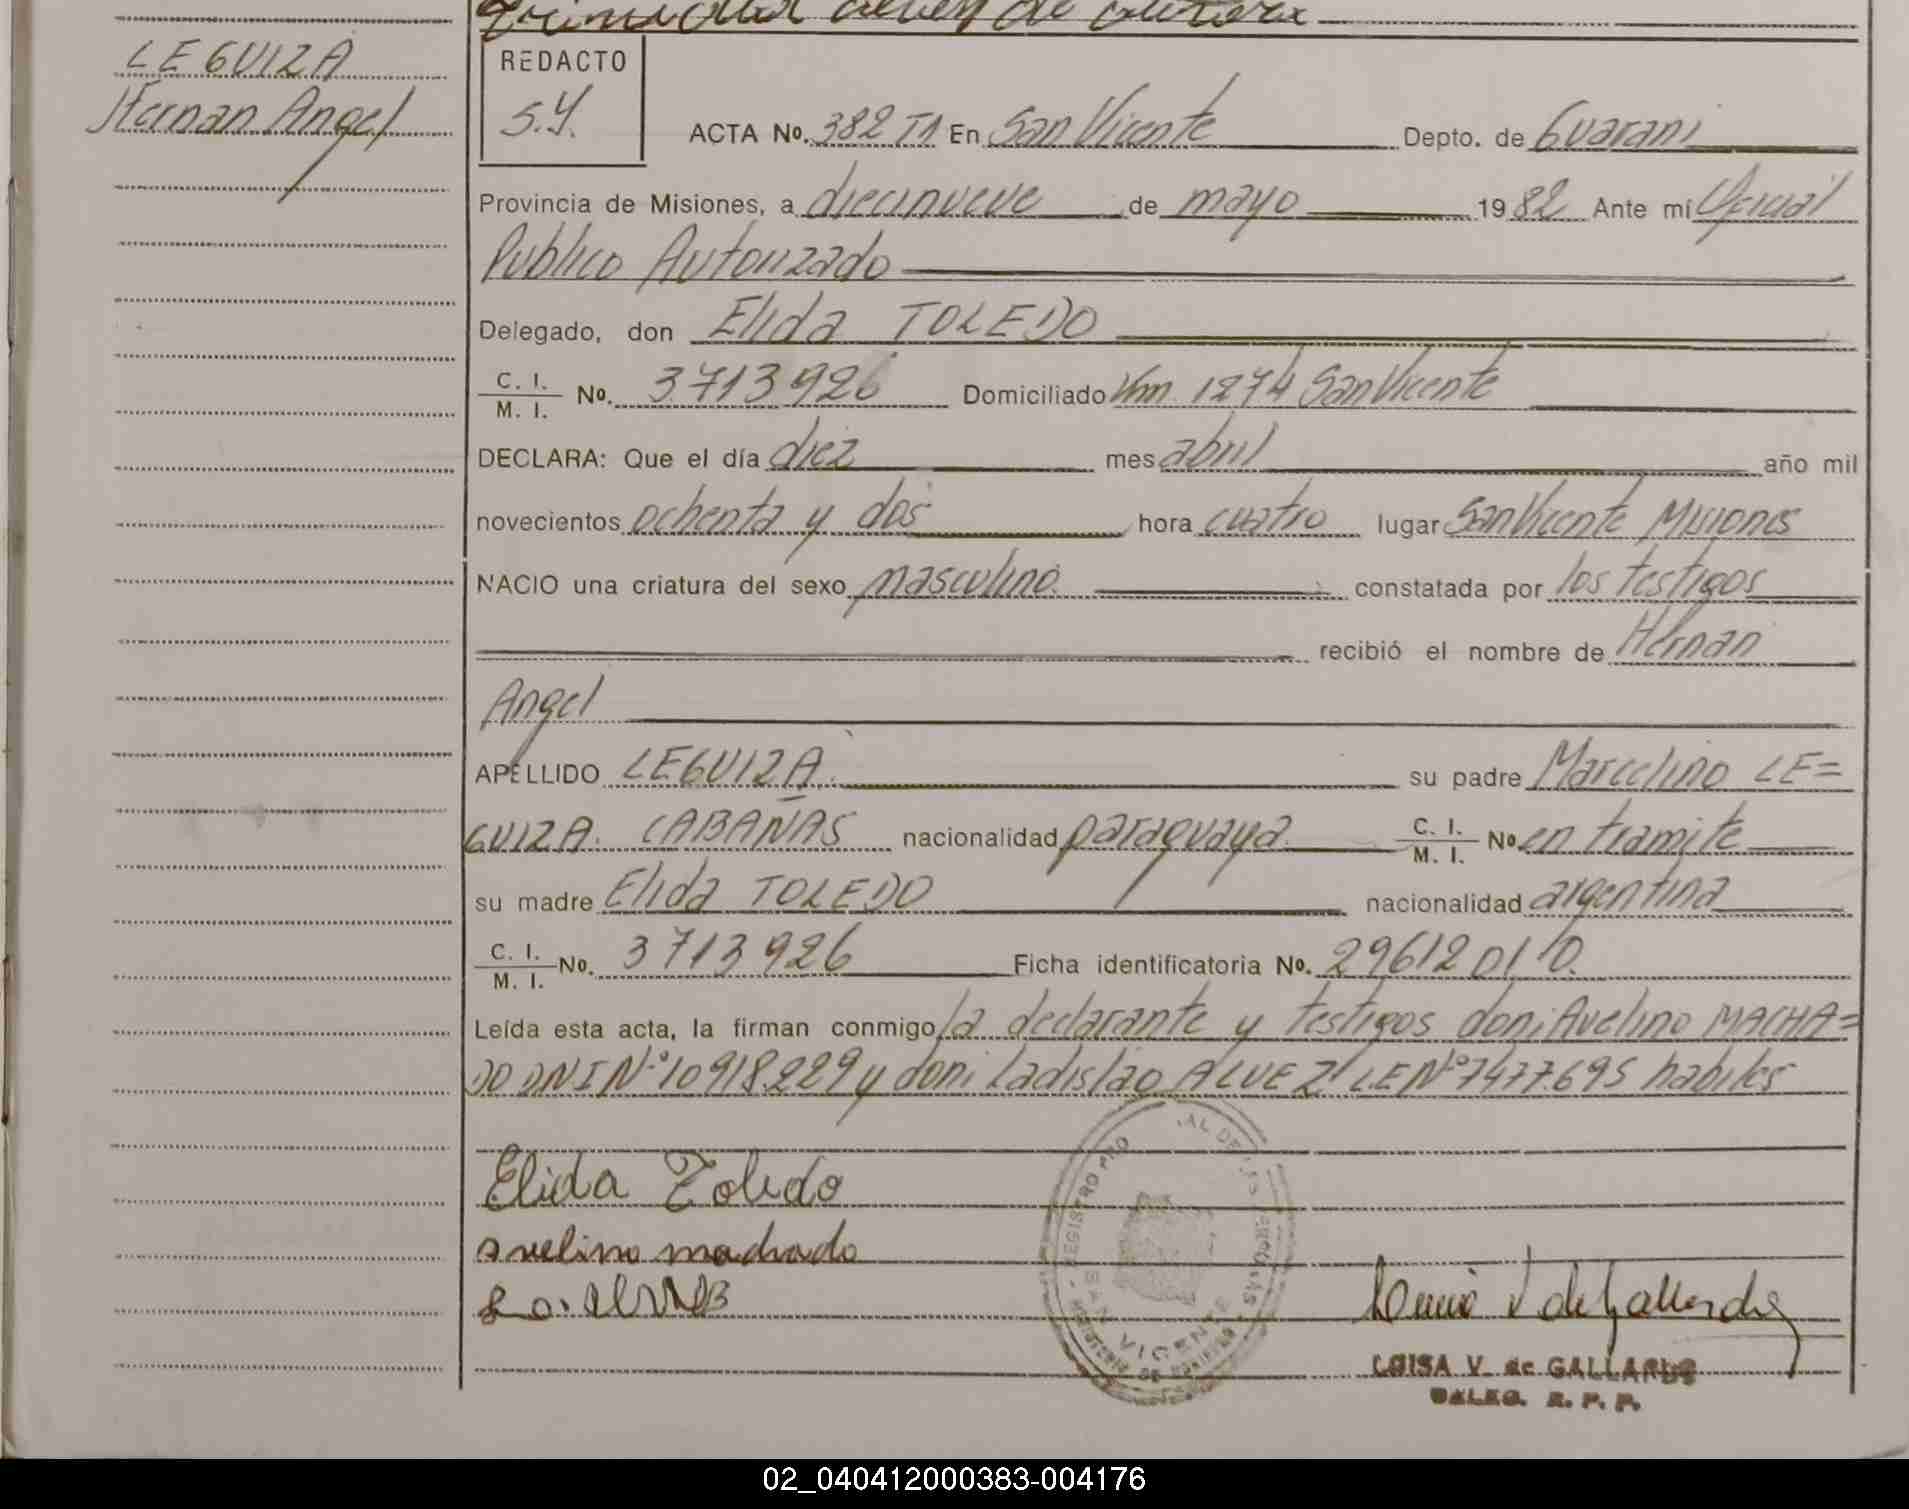 LEGUIZA
Hernan Angel
REDACTO
S.Y.
ACTA No. 382 T1 En San Vicente Depto. de Guarani
Provincia de Misiones, a diecinueve de mayo 1982 Ante mí Oficial
Publico Autorizado
Delegado, don Elida TOLEDO
C. I.
M. I. No. 3713926 Domiciliado Km 1274 San Vicente
DECLARA: Que el día diez mes abril año mil
novecientos ochenta y dos hora cuatro lugar San Vicente Misiones
NACIO una criatura del sexo masculino constatada por los testigos
recibió el nombre de Hernan
Angel
APELLIDO LEGUIZA su padre Marcelino LE=
GUIZA CABAÑAS nacionalidad paraguaya C. I.
M. I. No en tramite
su madre Elida TOLEDO nacionalidad argentina
C. I.
M. I. No. 3713926 Ficha identificatoria No.
Leída esta acta, la firman conmigo la declarante y testigos don: Avelino MACHA=
DO DNI N° 10918229 y don: Ladislao ALVEZ LE N° 7477.695 habiles
Elida Toledo
avelino machado
REGISTRO
SAN VICENTE
LUISA V. de GALLARDO
DELEG. R. P. P.
02_040412000383-004176